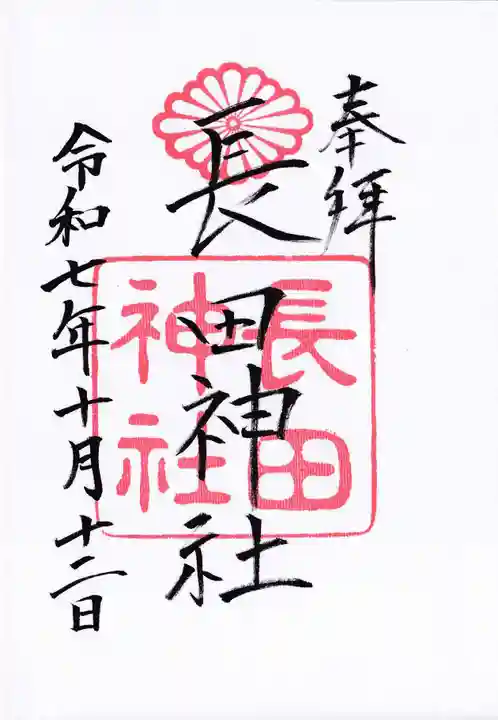 奉拝
長田神社
長田
神社
令和七年十月十二日